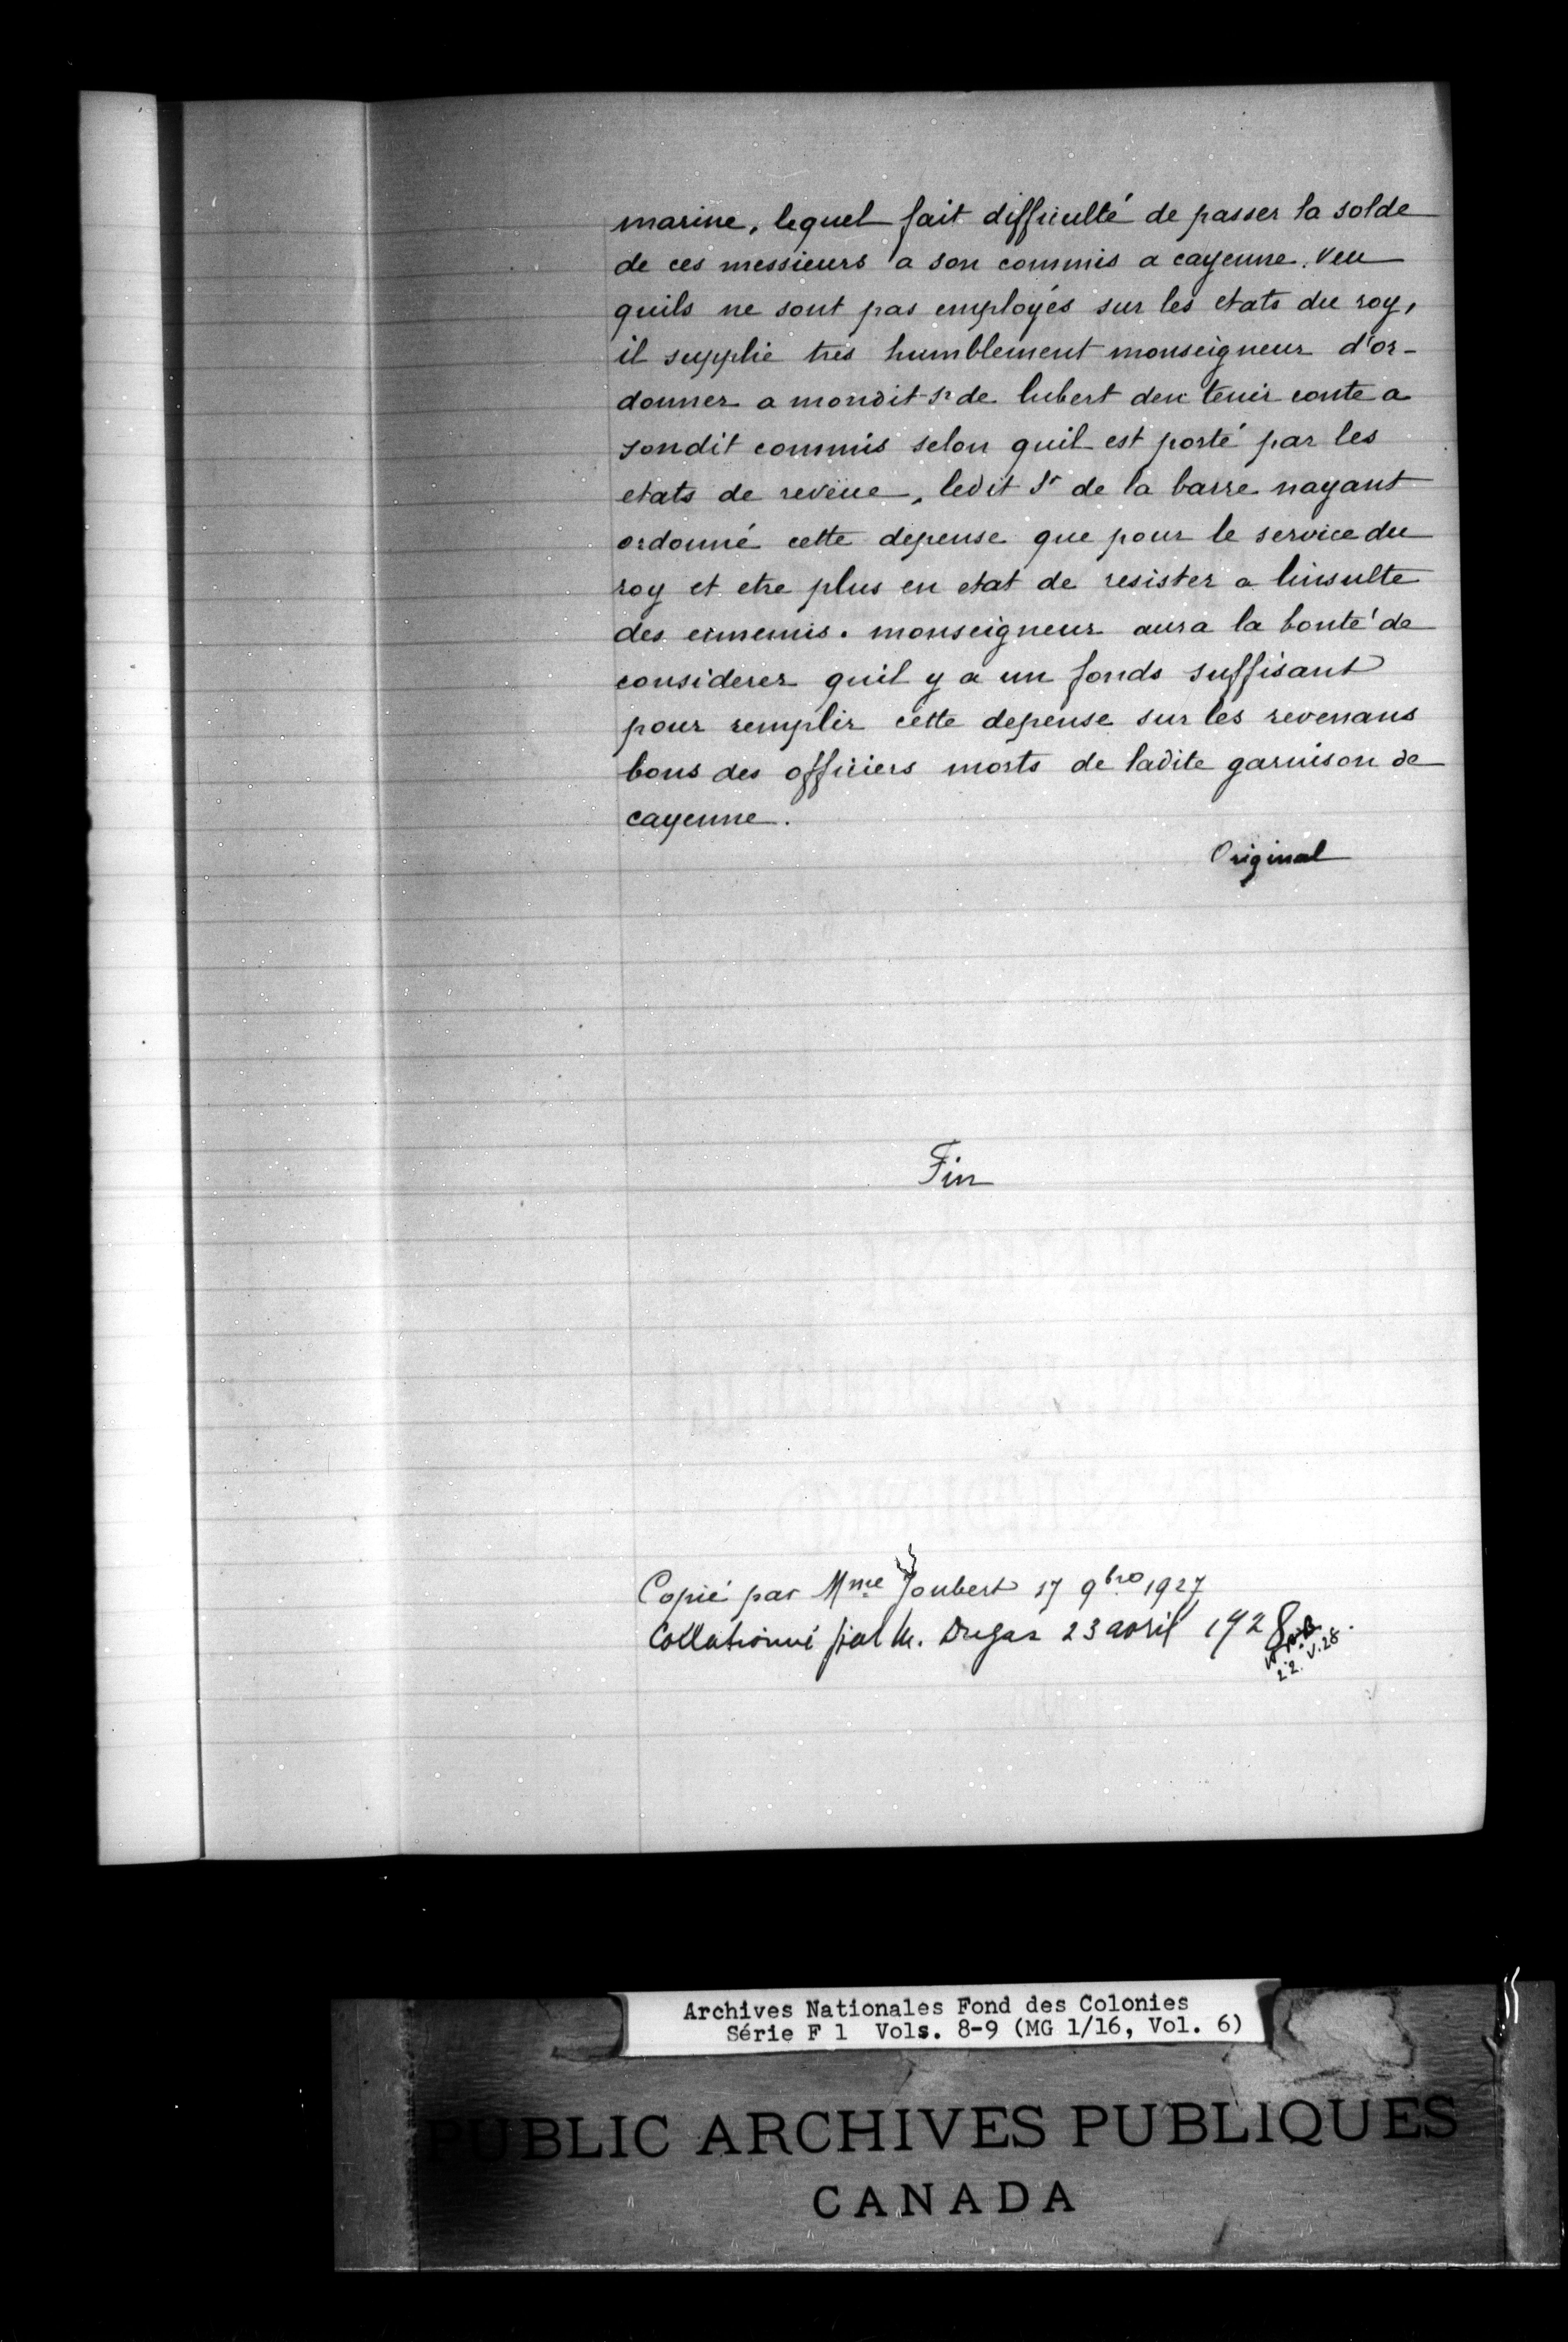 marine, lequel fait difficulté de passer la solde
de ces messieurs a son commis a cayenne. veu
quils ne sont pas employés sur les etats du roy,
il supplie tres humblement monseigneur d'or-
donner a mondit Sr de lubert den tenir conte a
sondit commis selon quil est porté par les
etats de reveue, ledit Sr de la barre nayant
ordonné cette depense que pour le service du
roy et etre plus en etat de resister a linsulte
des ennemis. monseigneur aura la bonté de
considerer quil y a un fonds suffisant
pour remplir cette depense sur les revenans
bons des officiers morts de ladite garnison de
cayenne.
Original
Fin
Copié par Mme Joubert 17 9bre 1927
Collationné par M. Dugas 23 avril 1928
22.V.28.
Archives Nationales Fond des Colonies
Série F 1 Vols. 8-9 (MG 1/16, Vol. 6)
PUBLIC ARCHIVES PUBLIQUES
CANADA